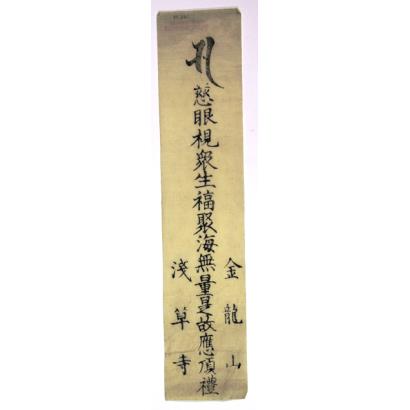 金龍山
慈眼視衆生福聚海無量是故應頂禮
淺草寺